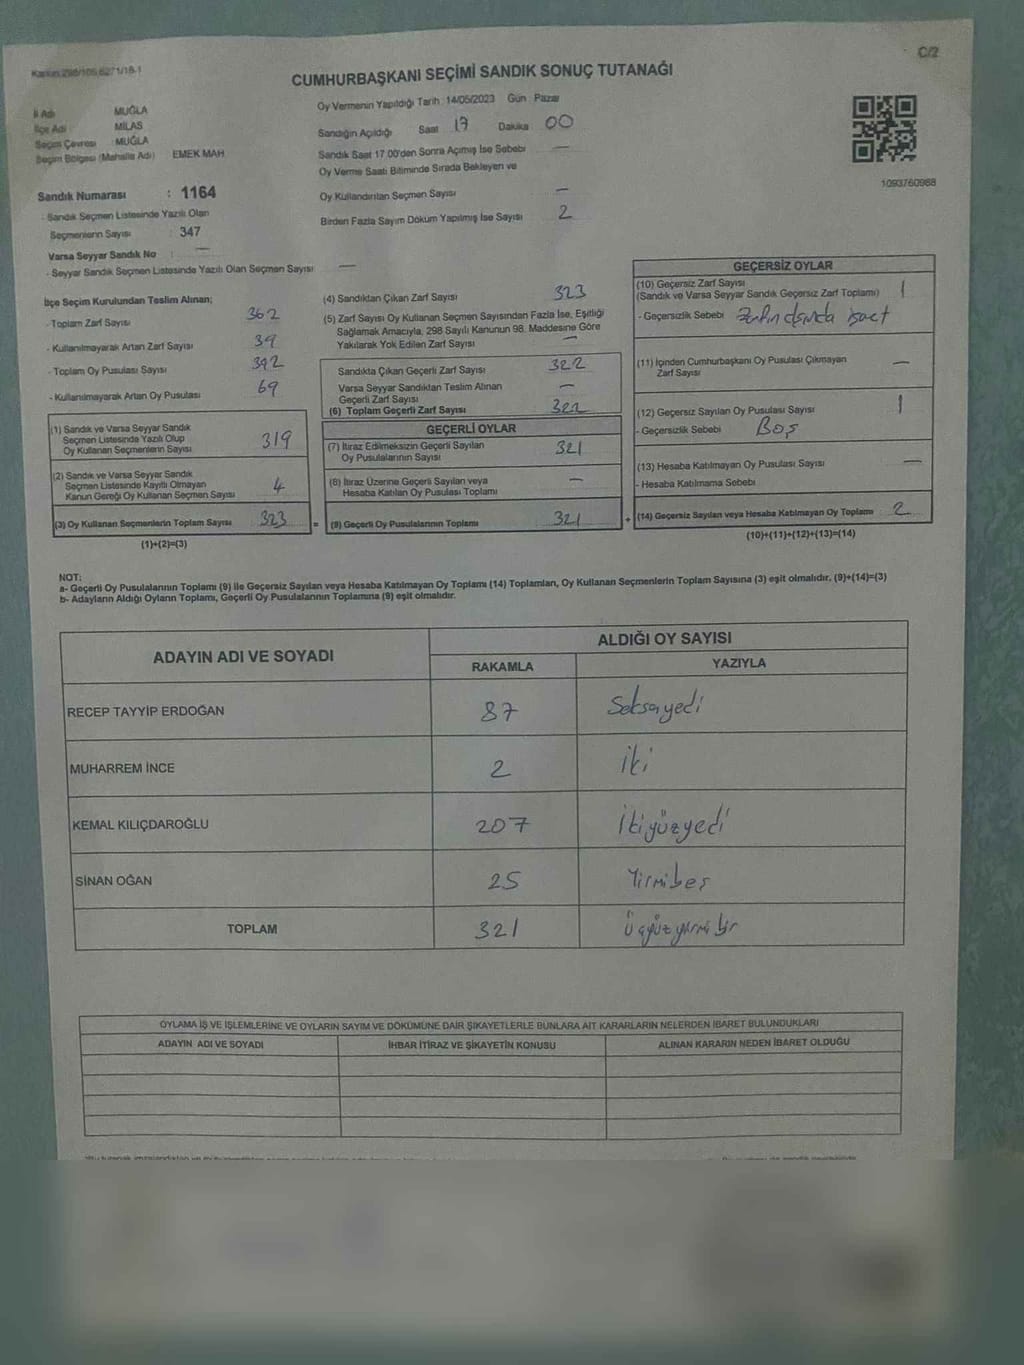 Kanun:298/105,6271/18-1
C/2
CUMHURBAŞKANI SEÇİMİ SANDIK SONUÇ TUTANAĞI
İl Adı MUĞLA
İlçe Adı MİLAS
Seçim Çevresi MUĞLA
Seçim Bölgesi (Mahalle Adı) EMEK MAH
Sandık Numarası : 1164
- Sandık Seçmen Listesinde Yazılı Olan
Seçmenlerin Sayısı : 347
Varsa Seyyar Sandık No : —
- Seyyar Sandık Seçmen Listesinde Yazılı Olan Seçmen Sayısı —
Oy Vermenin Yapıldığı Tarih : 14/05/2023 Gün : Pazar
Sandığın Açıldığı Saat 17 Dakika 00
Sandık Saat 17.00'den Sonra Açılmış İse Sebebi —
Oy Verme Saati Bitiminde Sırada Bekleyen ve
Oy Kullandırılan Seçmen Sayısı —
Birden Fazla Sayım Döküm Yapılmış İse Sayısı 2
1093760988
İlçe Seçim Kurulundan Teslim Alınan;
- Toplam Zarf Sayısı 362
- Kullanılmayarak Artan Zarf Sayısı 39
- Toplam Oy Pusulası Sayısı 392
- Kullanılmayarak Artan Oy Pusulası 69
(1) Sandık ve Varsa Seyyar Sandık
Seçmen Listesinde Yazılı Olup
Oy Kullanan Seçmenlerin Sayısı 319
(2) Sandık ve Varsa Seyyar Sandık
Seçmen Listesinde Kayıtlı Olmayan
Kanun Gereği Oy Kullanan Seçmen Sayısı 4
(3) Oy Kullanan Seçmenlerin Toplam Sayısı 323
(1)+(2)=(3)
(4) Sandıktan Çıkan Zarf Sayısı 323
(5) Zarf Sayısı Oy Kullanan Seçmen Sayısından Fazla İse, Eşitliği
Sağlamak Amacıyla, 298 Sayılı Kanunun 98. Maddesine Göre
Yakılarak Yok Edilen Zarf Sayısı —
Sandıkta Çıkan Geçerli Zarf Sayısı 322
Varsa Seyyar Sandıktan Teslim Alınan
Geçerli Zarf Sayısı —
(6) Toplam Geçerli Zarf Sayısı 322
GEÇERLİ OYLAR
(7) İtiraz Edilmeksizin Geçerli Sayılan
Oy Pusulalarının Sayısı 321
(8) İtiraz Üzerine Geçerli Sayılan veya
Hesaba Katılan Oy Pusulası Toplamı —
= (9) Geçerli Oy Pusulalarının Toplamı 321
GEÇERSİZ OYLAR
(10) Geçersiz Zarf Sayısı
(Sandık ve Varsa Seyyar Sandık Geçersiz Zarf Toplamı) 1
- Geçersizlik Sebebi Zarfın dışında işaret
(11) İçinden Cumhurbaşkanı Oy Pusulası Çıkmayan
Zarf Sayısı —
(12) Geçersiz Sayılan Oy Pusulası Sayısı 1
- Geçersizlik Sebebi Boş
(13) Hesaba Katılmayan Oy Pusulası Sayısı —
- Hesaba Katılmama Sebebi
+ (14) Geçersiz Sayılan veya Hesaba Katılmayan Oy Toplamı 2
(10)+(11)+(12)+(13)=(14)
NOT:
a- Geçerli Oy Pusulalarının Toplamı (9) ile Geçersiz Sayılan veya Hesaba Katılmayan Oy Toplamı (14) Toplamları, Oy Kullanan Seçmenlerin Toplam Sayısına (3) eşit olmalıdır. (9)+(14)=(3)
b- Adayların Aldığı Oyların Toplamı, Geçerli Oy Pusulalarının Toplamına (9) eşit olmalıdır.
ADAYIN ADI VE SOYADI ALDIĞI OY SAYISI
RAKAMLA YAZIYLA
RECEP TAYYİP ERDOĞAN 87 Seksenyedi
MUHARREM İNCE 2 İki
KEMAL KILIÇDAROĞLU 207 İkiyüzyedi
SİNAN OĞAN 25 Yirmibeş
TOPLAM 321 Üçyüzyirmi bir
OYLAMA İŞ VE İŞLEMLERİNE VE OYLARIN SAYIM VE DÖKÜMÜNE DAİR ŞİKAYETLERLE BUNLARA AİT KARARLARIN NELERDEN İBARET BULUNDUKLARI
ADAYIN ADI VE SOYADI İHBAR İTİRAZ VE ŞİKAYETİN KONUSU ALINAN KARARIN NEDEN İBARET OLDUĞU